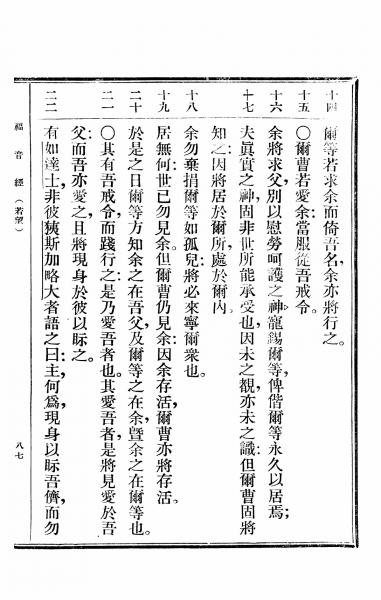 十四 爾等若求余而倚吾名，余亦將行之。
十五 〇爾曹若愛余，當服從吾戒令。
十六 余將求父，別以慰勞呵護之神，寵錫爾等，俾偕爾等永久以居焉；
十七 夫真實之神，固非世所能承受也，因未之覩，亦未之識：但爾曹固將
知之：因將居於爾所，處於爾內。
十八 余勿棄捐爾等如孤兒，將必來寧爾眾也。
十九 居無何，世已勿見余。但爾曹仍見余：因余存活，爾曹亦將存活。
二十 於是之日，爾等方知余之在吾父，及爾等之在余，曁余之在爾等也。
二一 〇其有吾戒令，而踐行之：是乃愛吾者也。其愛吾者，是將見愛於吾
父：而吾亦愛之，且將現身於彼以眎之。
二二 有如達士，非彼荑斯加略大者，語之曰：主，何爲現身以眎吾儕，而勿
福音經（若望）
八七